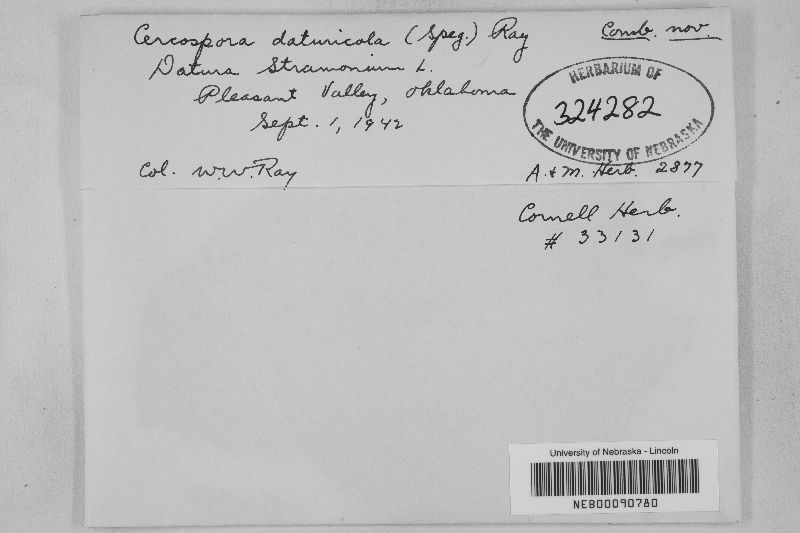 Cercospora daturicola (Speg.) Ray Comb. nov.
Datura Stramonium L.
Pleasant Valley, Oklahoma
Sept. 1, 1942
HERBARIUM OF
324282
THE UNIVERSITY OF NEBRASKA
Col. W.W. Ray
A. & M. Herb. 2877
Cornell Herb.
# 33131
University of Nebraska - Lincoln
NEB00090780